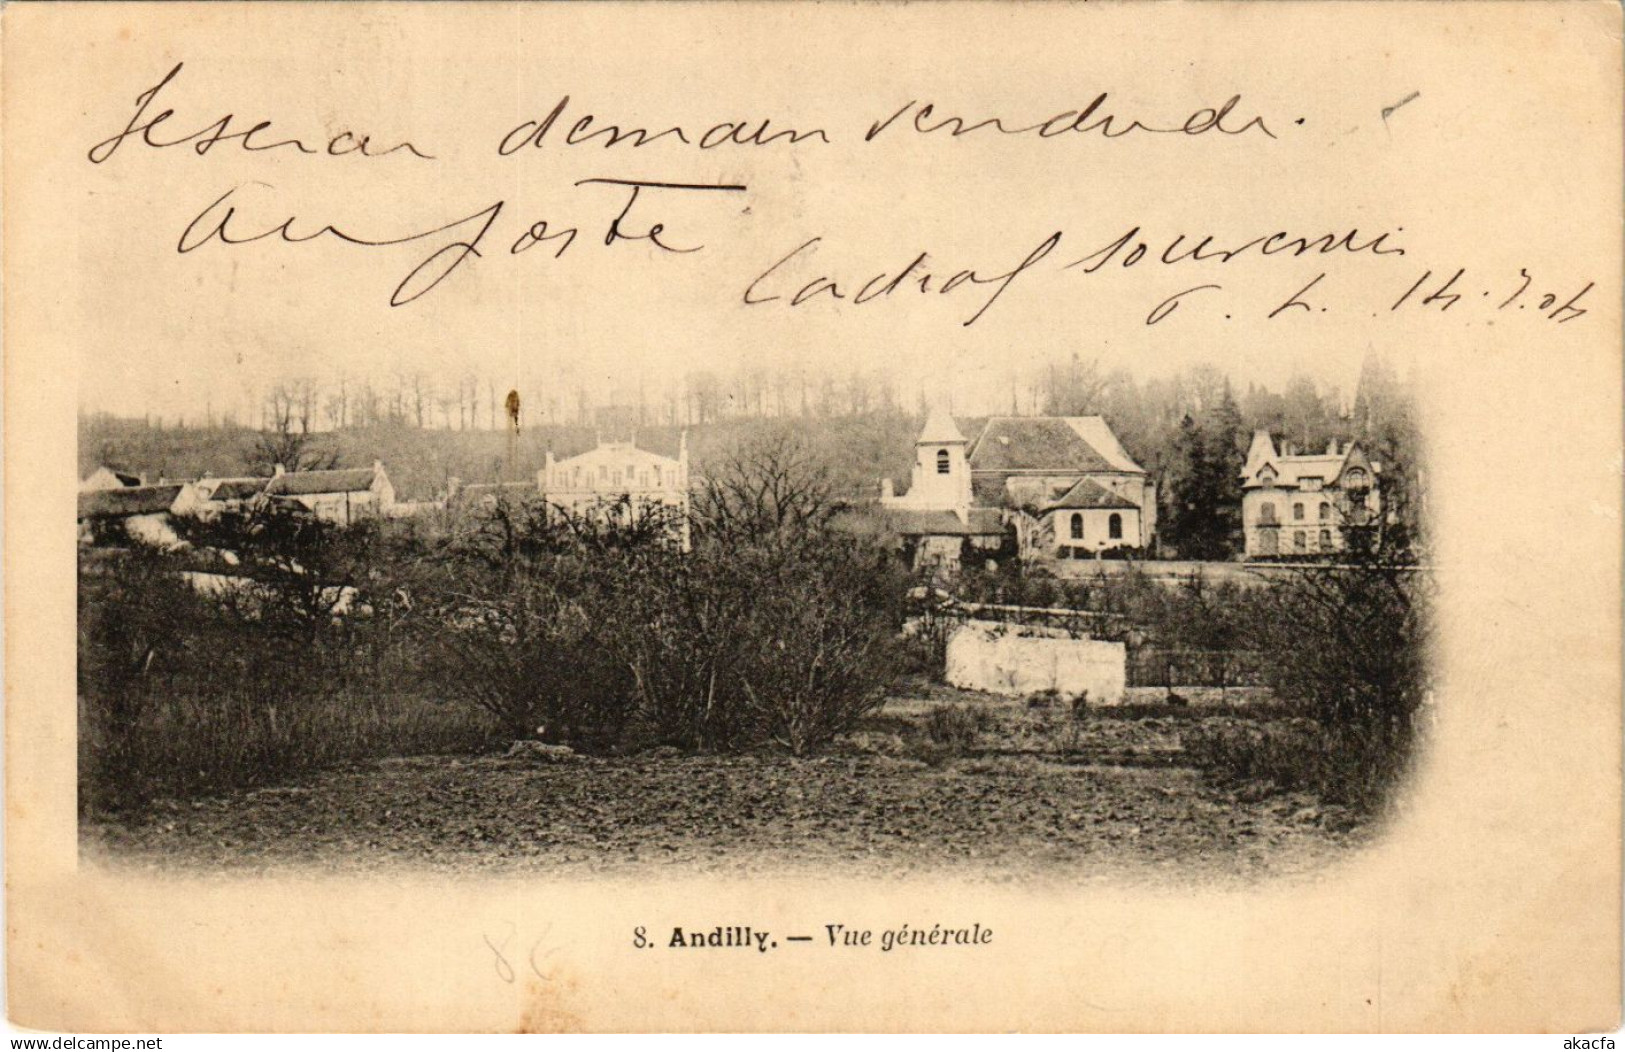 Je serai demain vendredi.
au poste
Cordial souvenir
G. L. 14.7.04
8. Andilly. — Vue générale
8€
akacfa
www.delcampe.net